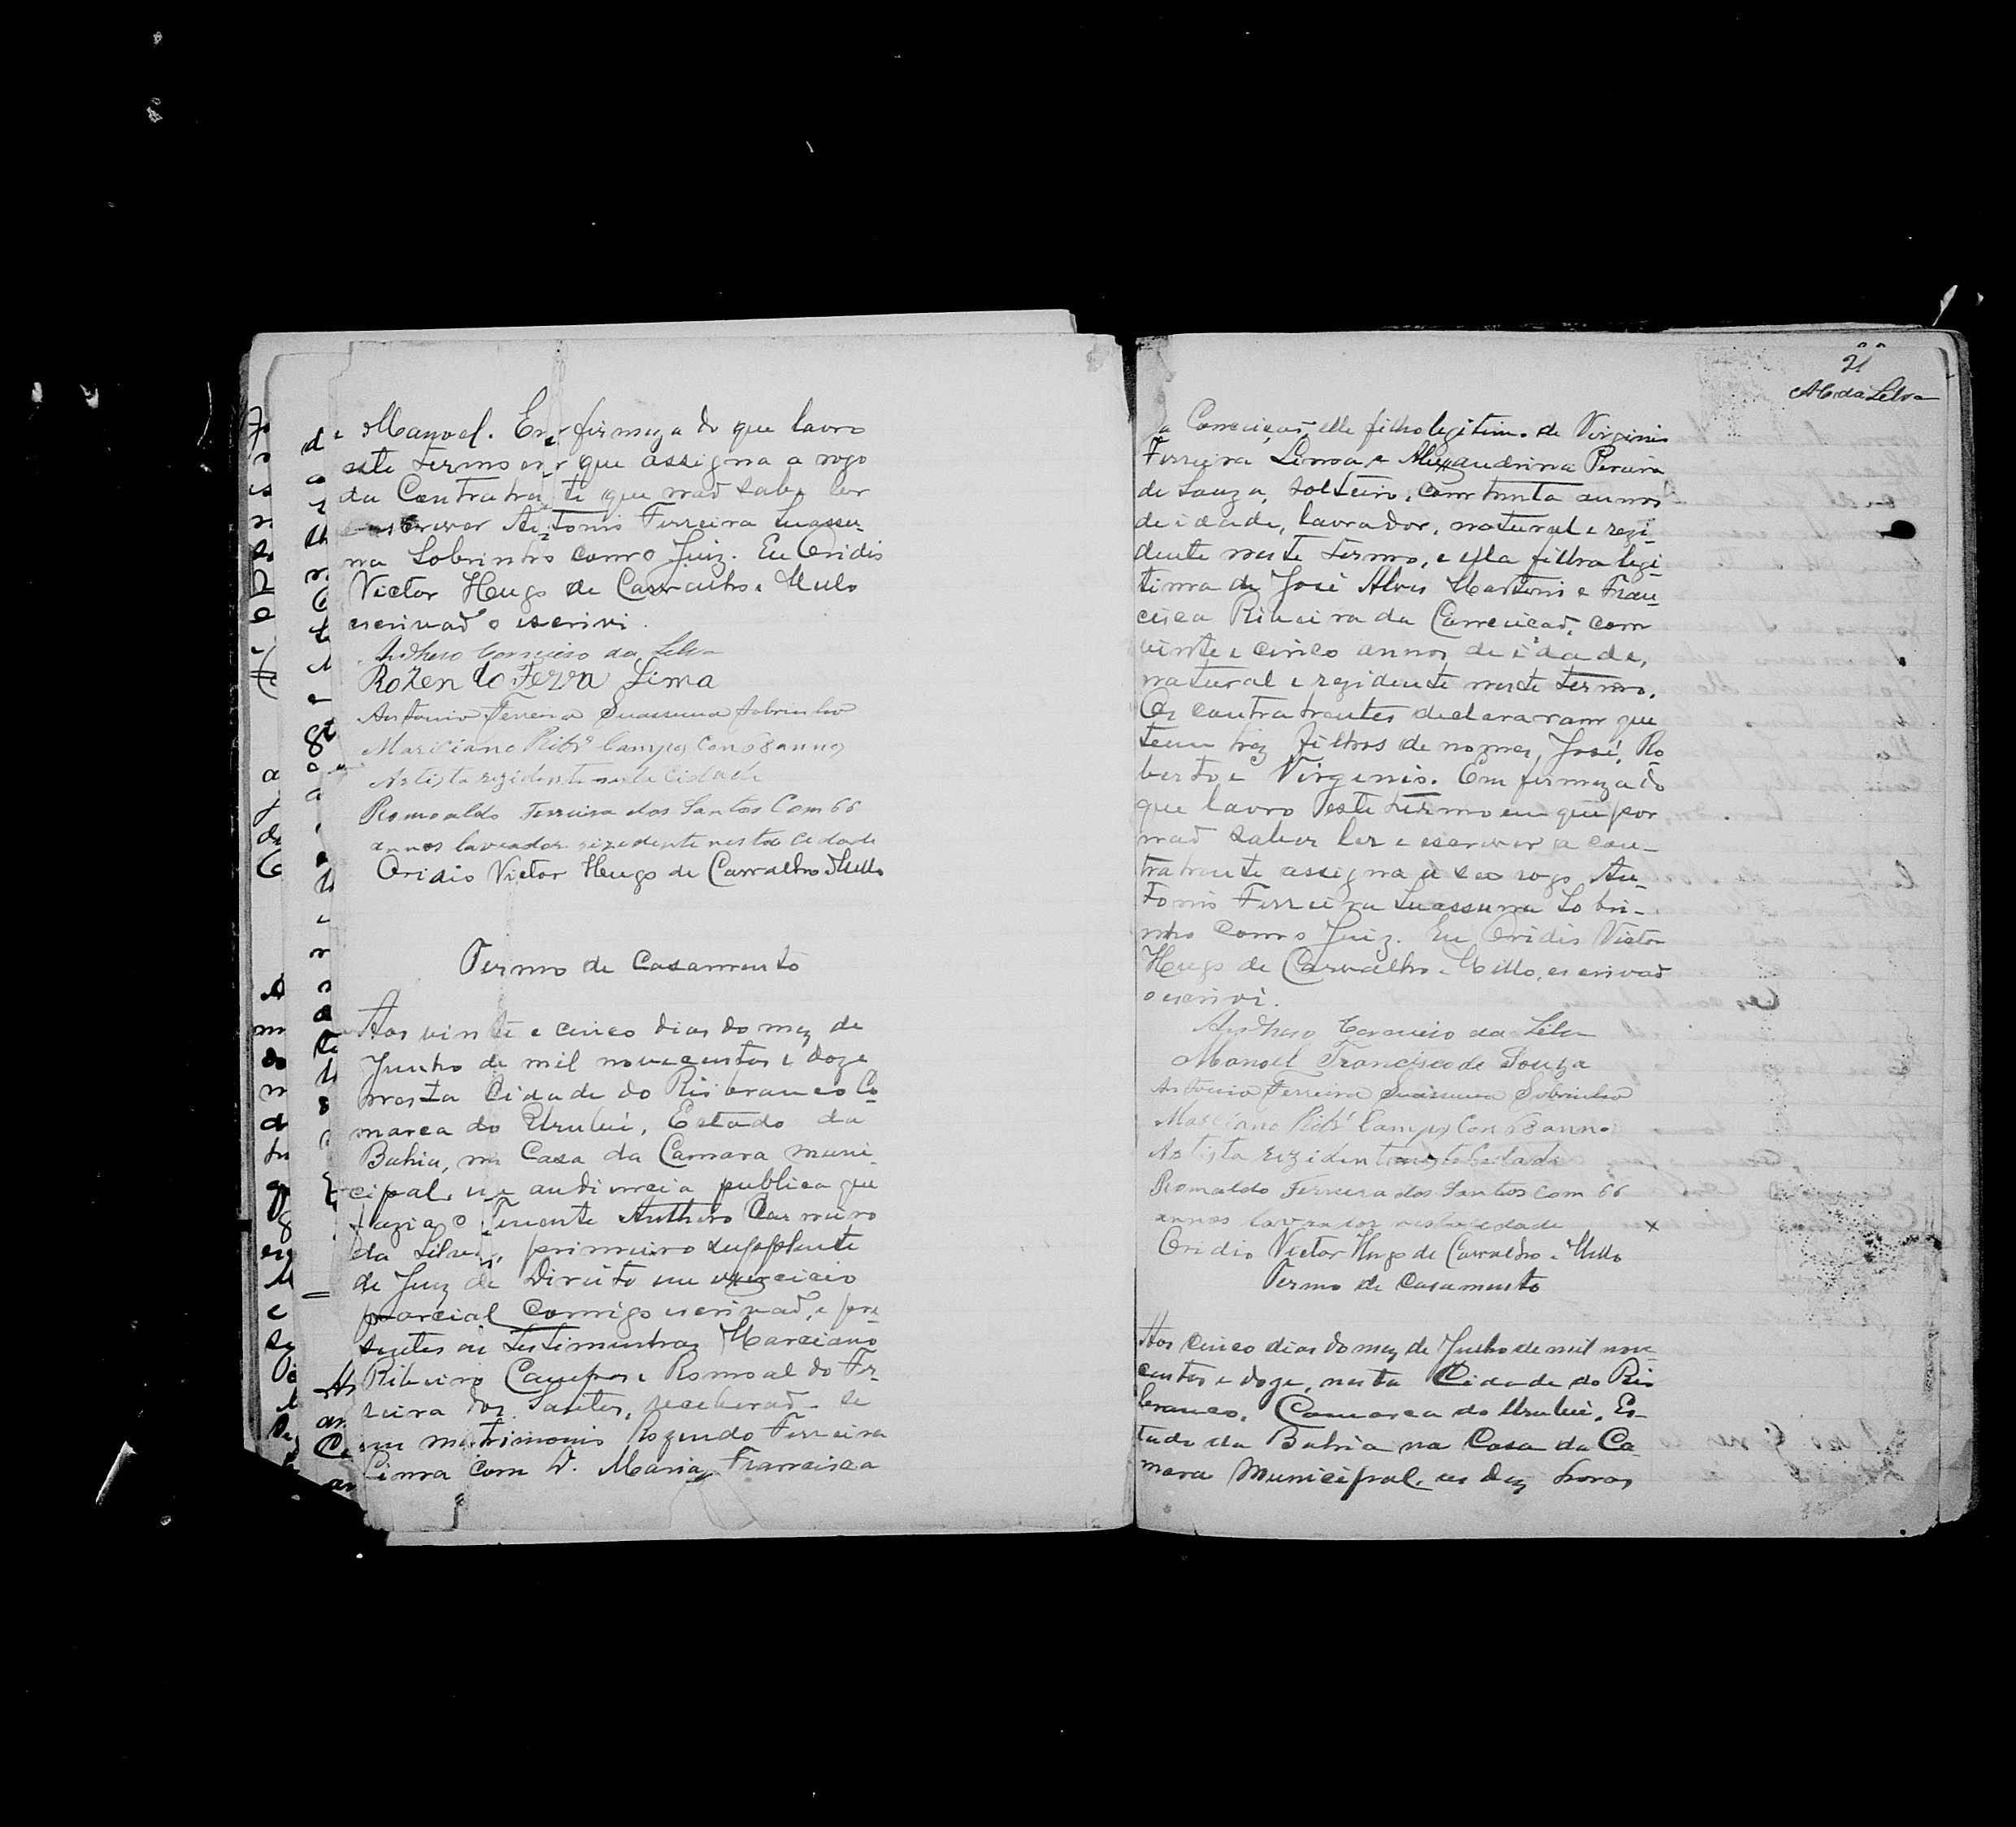 e Manoel. Em firmeza do que lavro
este termo em que assigna a rogo
da Contratante que não sabe ler
e escrever Antonio Ferreira Suassu-
na Sobrinho como Juiz. Eu Ovidio
Victor Hugo de Carvalho e Mello
escrivão o escrevi.
Anthero Carneiro da Silva
Rozendo Ferra Lima
Antonio Ferreira Suassuna Sobrinho
Marciano Ribrº Campos Con 58 annos
Artista rezidente nesta Cidade
Romoaldo Ferreira dos Santos Com 66
annos lavrador rezedente nesta cidade
Ovidio Victor Hugo de Carvalho e Mello
Termo de Casamento
Aos vinte e cinco dias do mez de
Junho de mil novecentos e doze
nesta Cidade do Rio branco Co-
marca do Urubú, Estado da
Bahia, na Casa da Camara muni-
cipal, em audiencia publica que
fazia o Tenente Anthero Carneiro
da Silva, primeiro supplente
de Juiz de Direito em exercicio
parcial comigo escrivão, e pre-
sentes as testimunhas Marciano
Ribeiro Campos e Romoaldo Fer-
reira dos Santos, receberão-se
em matrimonio Rozendo Ferreira
Lima com D. Maria Francisca
21
ACda Silva
da Conceição, elle filho legitimo de Virginio
Ferreira Lima e Alexandrina Pereira
de Souza, solteiro, com trinta annos
de idade, lavrador, natural e rezi-
dente neste termo, e ella filha legi-
tima de José Alves Martins e Fran-
cisca Ribeira da Conceição, com
vinte e cinco annos de idade,
natural e rezidente neste termo.
Os contratrentes declararam que
tem trez filhos de nomes, José, Ro-
berto e Virgenio. Em firmeza do
que lavro este termo em que por
não saber ler e escrever a con-
tratrente assigna a seo rogo An-
tonio Ferreira Suassuna Sobri-
nho como Juiz. Eu Ovidio Victor
Hugo de Carvalho e Mello, escrivão
o escrevi.
Anthero Carneiro da Silva
Manoel Francisco de Souza
Antonio Ferreira Suassuna Sobrinho
Marciano Ribrº Campos Con 58 annos
Artista rezidente nesta Cidade
Romaldo Ferreira dos Santos Com 66
annos lavrador nesta cidade x
Ovidio Victor Hugo de Carvalho e Mello
Termo de Casamento
Aos cinco dias do mez de Junho de mil nove-
centos e doze, nesta Cidade do Rio
branco, Comarca do Urubú, Es-
tado da Bahia na Casa da Ca-
mara Municipal, as dez horas